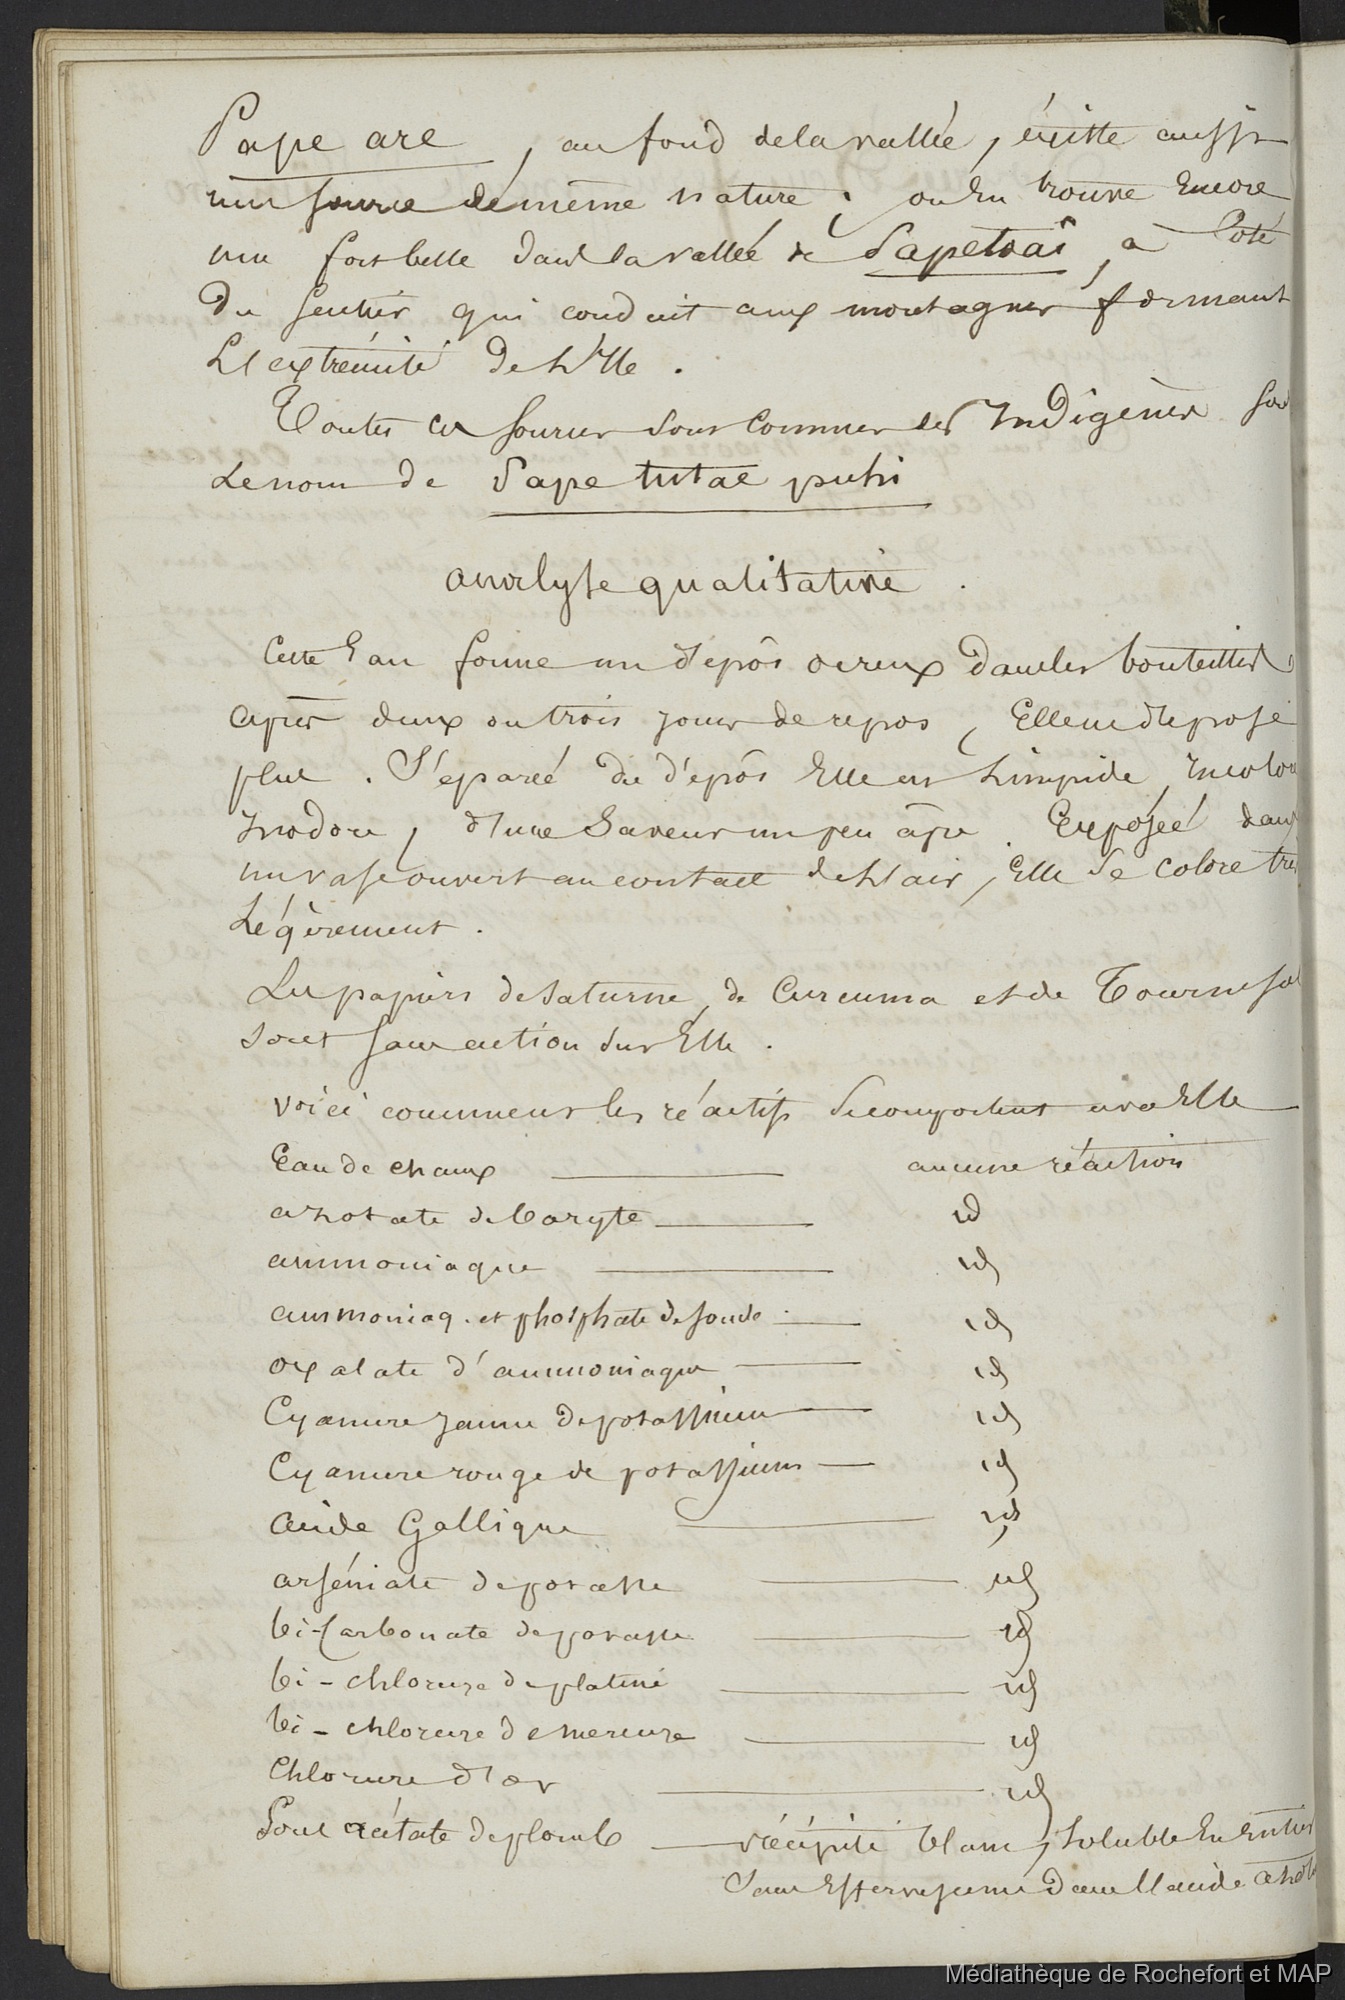 Pape are, au fond de la vallée, existe aussi
une source de même nature; on en trouve encore
une fort belle dans la vallée de Papetoaï, à côté
du sentier qui conduit aux montagnes formant
L'extrémité de L'Ile.
Toutes ces sources sont connues des Indigènes sous
Le nom de Pape tutae puhi
analyse qualitative.
Cette Eau forme un dépôt ocreux dans les bouteilles
après deux ou trois jours de repos, Elle ne dépose
plus. Séparée du dépôt Elle est Limpide, Incolore
Inodore, d'une Saveur un peu âpre. Exposée dans
un vase ouvert au contact de L'air, Elle se colore très
Légèrement.
Les papiers de saturne, de Curcuma et de Tournesol
sont sans action sur Elle.
Voici comment les réactifs se comportent avec Elle
Eau de chaux aucune réaction
azotate de baryte id
ammoniaque id
ammoniaq. et phosphate de soude id
oxalate d'ammoniaque id
Cyanure jaune de potassium id
Cyanure rouge de potassium id
acide Gallique id
arséniate de potasse id
bi-Carbonate de potasse id
bi-chlorure de platine id
bi-chlorure de mercure id
Chlorure d'or id
Sous acétate de plomb précipité blanc, soluble En Entier
sans Effervescence dans l'acide azot
Médiathèque de Rochefort et MAP